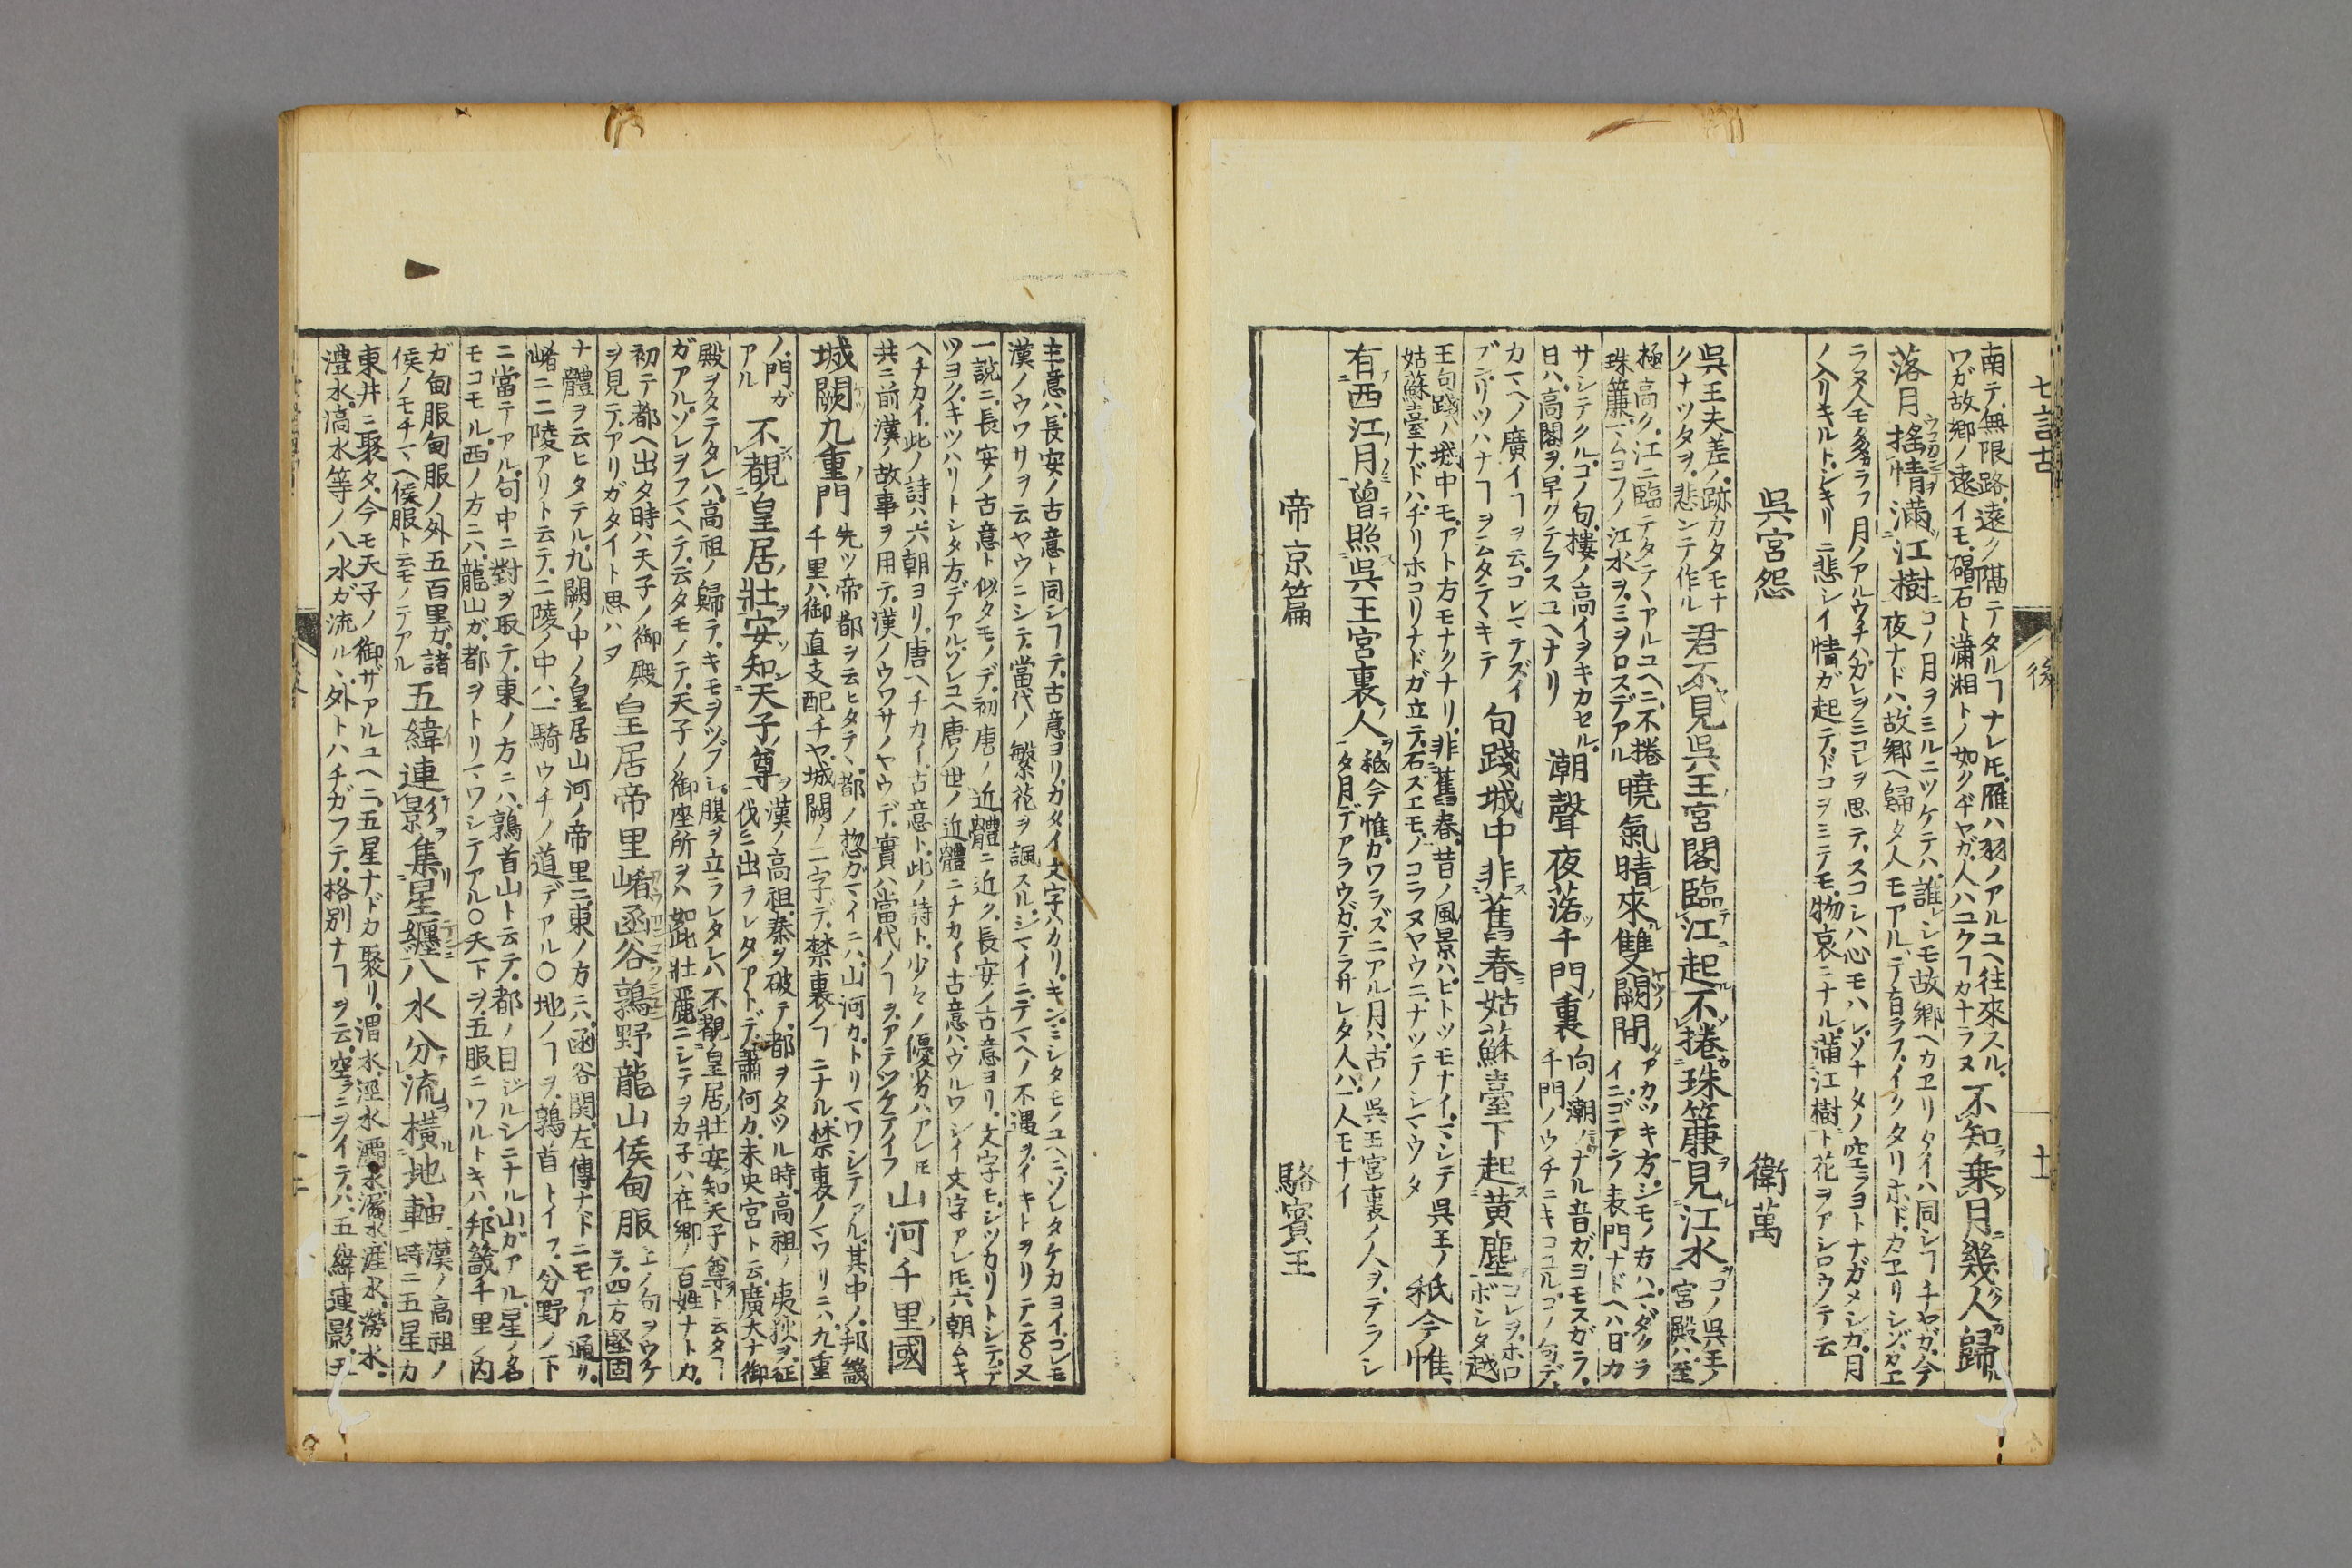 七言古
後
十一
南テ、無限路、遠ク隔テタルヿナレ𪜈、雁ハ羽ノアルユヘ往來スル、
ワガ故郷ノ遠イモ、碣石ト瀟湘トノ如クヂヤガ、人ハユクヿカナラヌ
不知乗月幾人歸
落月搖情滿江樹
コノ月ヲミルニツケテハ、誰レシモ故郷ヘカヱリタイハ同シヿチヤガ、今
夜ナドハ、故郷ヘ歸タ人モアルデ有ラフ、イクタリホドカヱリシゾ、カヱ
ラヌ人モ多カラフ月ノアルウチハ、ガレヲミコレヲ思テ、スコシハ心モハレ、ソナタノ空ラヨトナガメシガ、月
ノ入リキルト、シキリニ悲シイ情ガ起テ、ドコヲミテモ、物哀ニナル、滿江樹ト花ヲアシロウテ云
吳宮怨
衛萬
吳王夫差ノ跡カタモナ
クナツタヲ、悲ンテ作ル
君不見吳王宮閣臨江起不捲珠簾見江水
コノ吳王ノ
宮殿ハ、至
極高ク、江ニ臨テタテヽアルユヘニ、不捲
珠簾、ムコフノ江水ヲ、ミヲロスデアル
曉氣晴來雙闕間
アカツキ方、シモノカハ、マダクラ
イニ、ゴテンノ表門ナドヘハ、日カ
サシテクル、コノ句、樓ノ高イヲキカセル、
日ハ、高閣ヲ、早クテラスユヘナリ
潮聲夜落千門裏
向ノ潮ノナル音ガ、ヨモスガラ、
千門ノウチニキコユル、コノ句デ、
カマヘノ廣イヿヲ云、コレマテズイ
ブンリツハナヿヲ云タテヽキテ
句踐城中非舊春姑蘇臺下起黄塵
コレヲ、ホロ
ボシタ越
王句踐ノ城中モ、アト方モナクナリ、非舊春、昔ノ風景ハ、ヒトツモナイ、マシテ吳王ノ
姑蘇臺ナドハ、チリホコリナドガ立テ、石ズヱモ、ノコラヌヤウニ、ナツテシマウタ
秖今惟
有西江月曾照吳王宮裏人
秖今惟、カワラズニアル月ハ、古ノ吳王宮裏ノ人ヲ、テラシ
タ月デアラウガ、テラサレタ人ハ、一人モナイ
帝京篇
駱賓王
主意ハ、長安ノ古意ト同シヿテ、古意ヨリ、カタイ文字ハカリ、キンミシタモノユヘニ、ソレタケカヨイ、コレモ
漢ノウワサヲ云ヤウニシテ、當代ノ繁花ヲ諷スル、シマイニ、テマヘノ不遇ヲ、イキトヲリテ云〇又
一説ニ、長安ノ古意ト似タモノデ、初唐ノ近體ニ近ク、長安ノ古意ヨリ、文字モ、シツカリトシテ、デ
ツヨク、キツハリトシタ方デアル、ソレユヘ唐ノ世ノ近體ニチカイ古意ハ、ウルワシイ文字アレ𪜈、六朝ムキ
ヘチカイ、此ノ詩ハ、六朝ヨリ、唐ヘチカイ、古意ト、此ノ詩ト、少々ノ優劣ハアレ𪜈
共ニ前漢ノ故事ヲ用テ、漢ノウワサノヤウデ、實ハ當代ノヿヲ、アテツケテイフ
山河千里國
城闕九重門
先ツ帝都ヲ云ヒタテヽ、都ノ惣カマイニハ、山河カ、トリマワシテアル、其中ノ邦畿
千里ハ、御直支配チヤ、城闕ノ二字デ、禁裏ノヿニナル、禁裏ノマワリニハ、九重
ノ門ガ
アル
不覩皇居壯安知天子尊
漢ノ高祖、秦ヲ破テ、都ヲタツル時、高祖ノ夷狄ヲ征
伐ニ出ラレタアトデ、蕭何カ、未央宮ト云、廣大ナ御
殿ヲタテタレハ、高祖ノ歸テ、キモヲツブシ、腹ヲ立ラレタレハ、不覩皇居壯安知天子尊ト云タヿ
ガアル、ソレヲフマヘテ、云タモノテ、天子ノ御座所ヲハ、如此壯麗ニシテヲカ子ハ、在郷ノ百姓ナトカ、
初テ都ヘ出タ時ハ、天子ノ御殿
ヲ見テ、アリガタイト思ハヌ
皇居帝里崤函谷鶉野龍山侯甸服
上ノ句ヲウケ
テ、四方堅固
ナ體ヲ云ヒタテル、九闕ノ中ノ皇居山河ノ帝里ニ、東ノ方ニハ、函谷関、左傳ナドニモアル通リ、
崤ニ二陵アリト云テ、二陵ノ中ハ、一騎ウチノ道デアル〇地ノヿヲ、鶉首トイフ、分野ノ下
ニ當テアル、句中ニ對ヲ取テ、東ノ方ニハ、鶉首山ト云テ、都ノ目ジルシニナル山ガアル、星ノ名
モコモル、西ノ方ニハ、龍山ガ、都ヲトリマワシテアル〇天下ヲ、五服ニワルトキハ、邦畿千里ノ内
ガ甸服、甸服ノ外五百里ガ、諸
侯ノモチマヘ、侯服ト云モノテアル
五緯連影集星纏八水分流横地軸
漢ノ高祖ノ
時ニ五星カ
東井ニ聚タ、今モ天子ノ御ザアルユヘニ、五星ナドカ聚リ、渭水涇水㶚水滻水、澇水、
澧水、滈水等ノ八水ガ流ルヽ、外トハチガフテ、格別ナヿヲ云、空ニヲイテハ、五緯連影、五